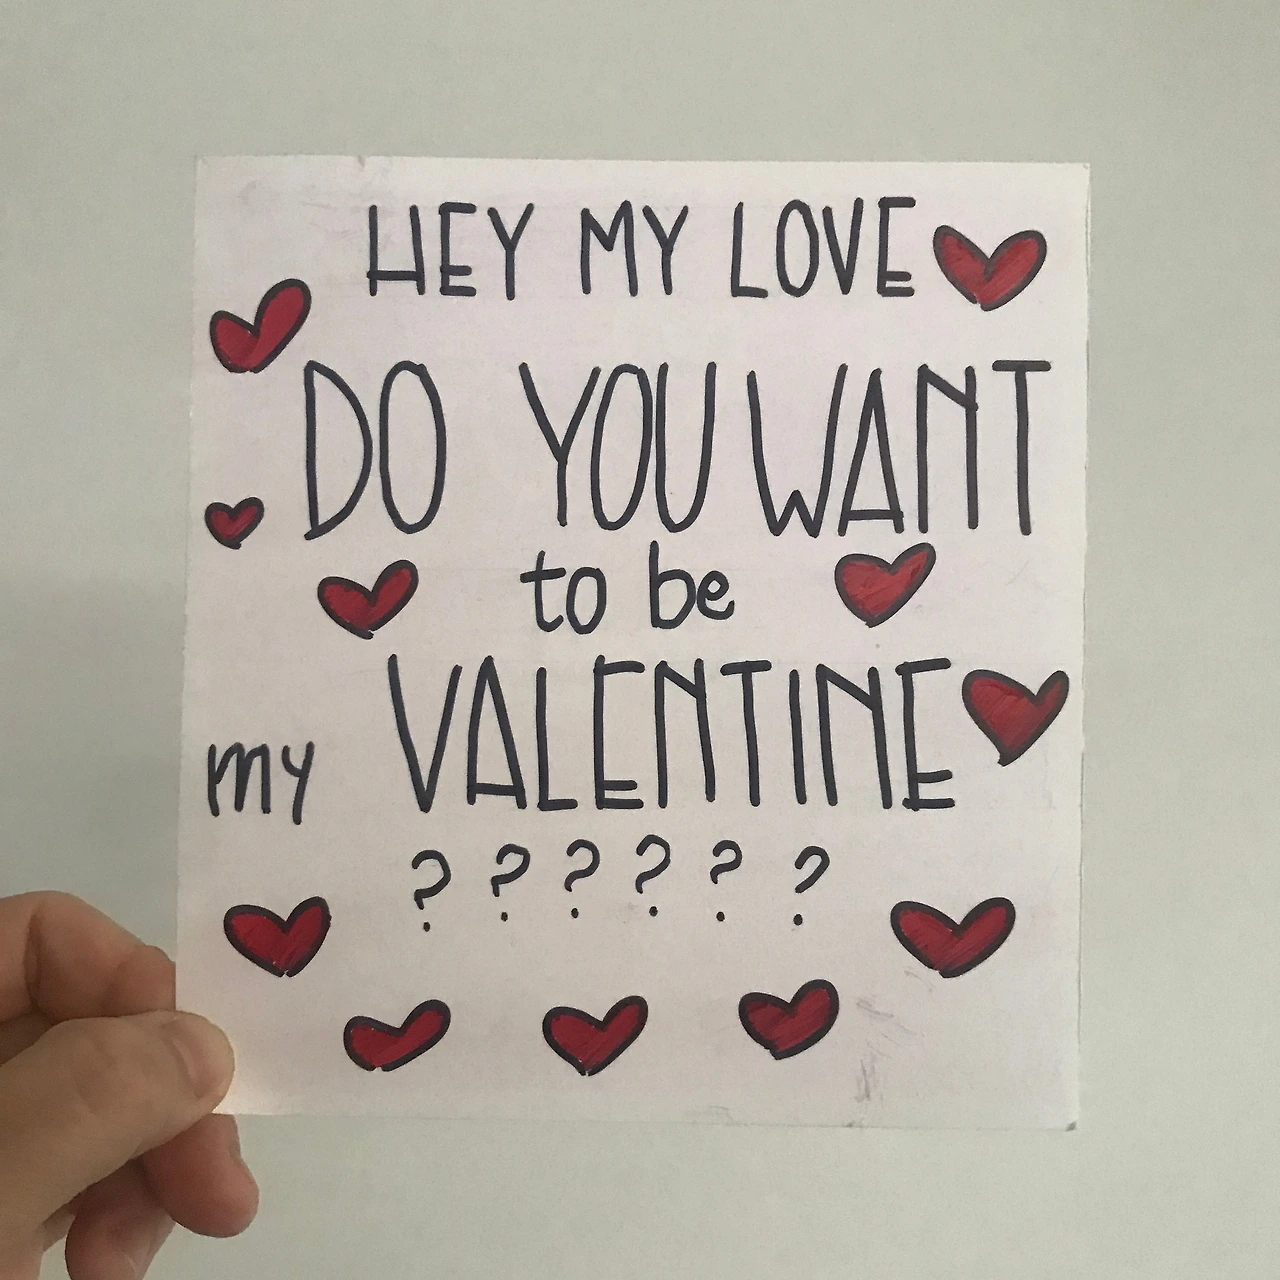 HEY MY LOVE
DO YOU WANT
to be
my VALENTINE
??????